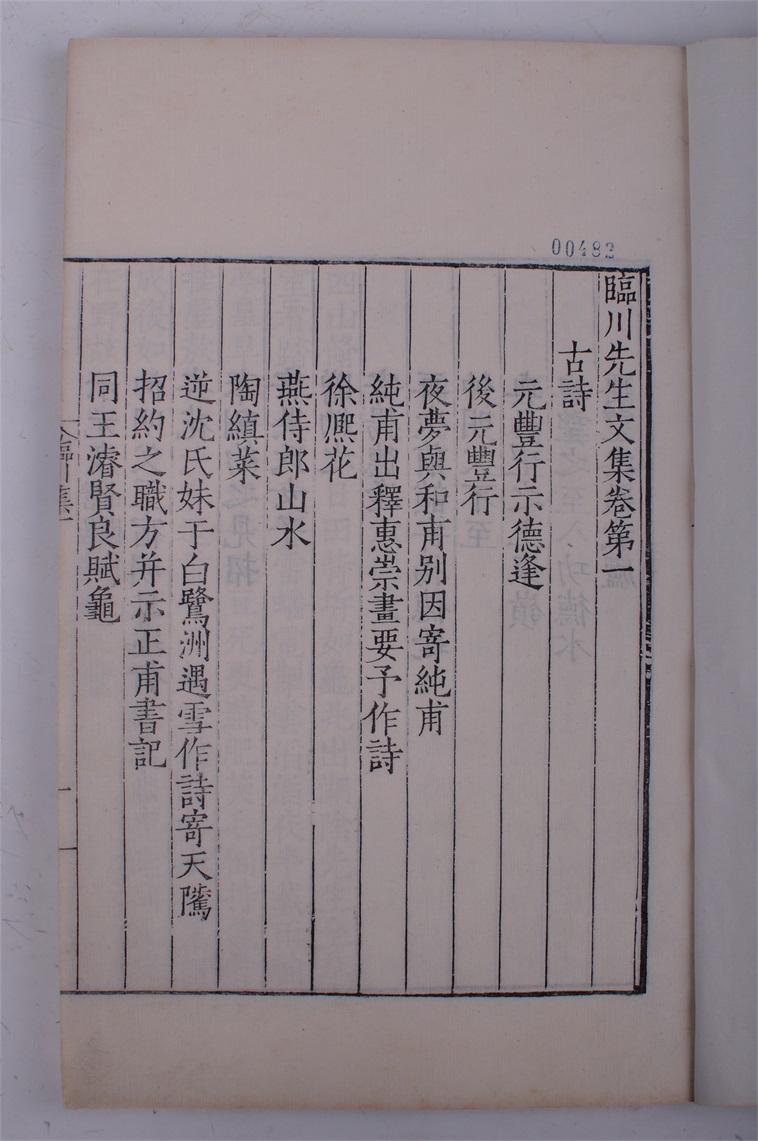 00482
臨川先生文集卷第一
古詩
元豐行示德逢
後元豐行
夜夢與和甫别因寄純甫
純甫出釋惠崇畫要予作詩
徐熈花
燕侍郎山水
陶縝菜
逆沈氏妹于白鷺洲遇雪作詩寄天隲
招約之職方并示正甫書記
同王濬賢良賦龜
一